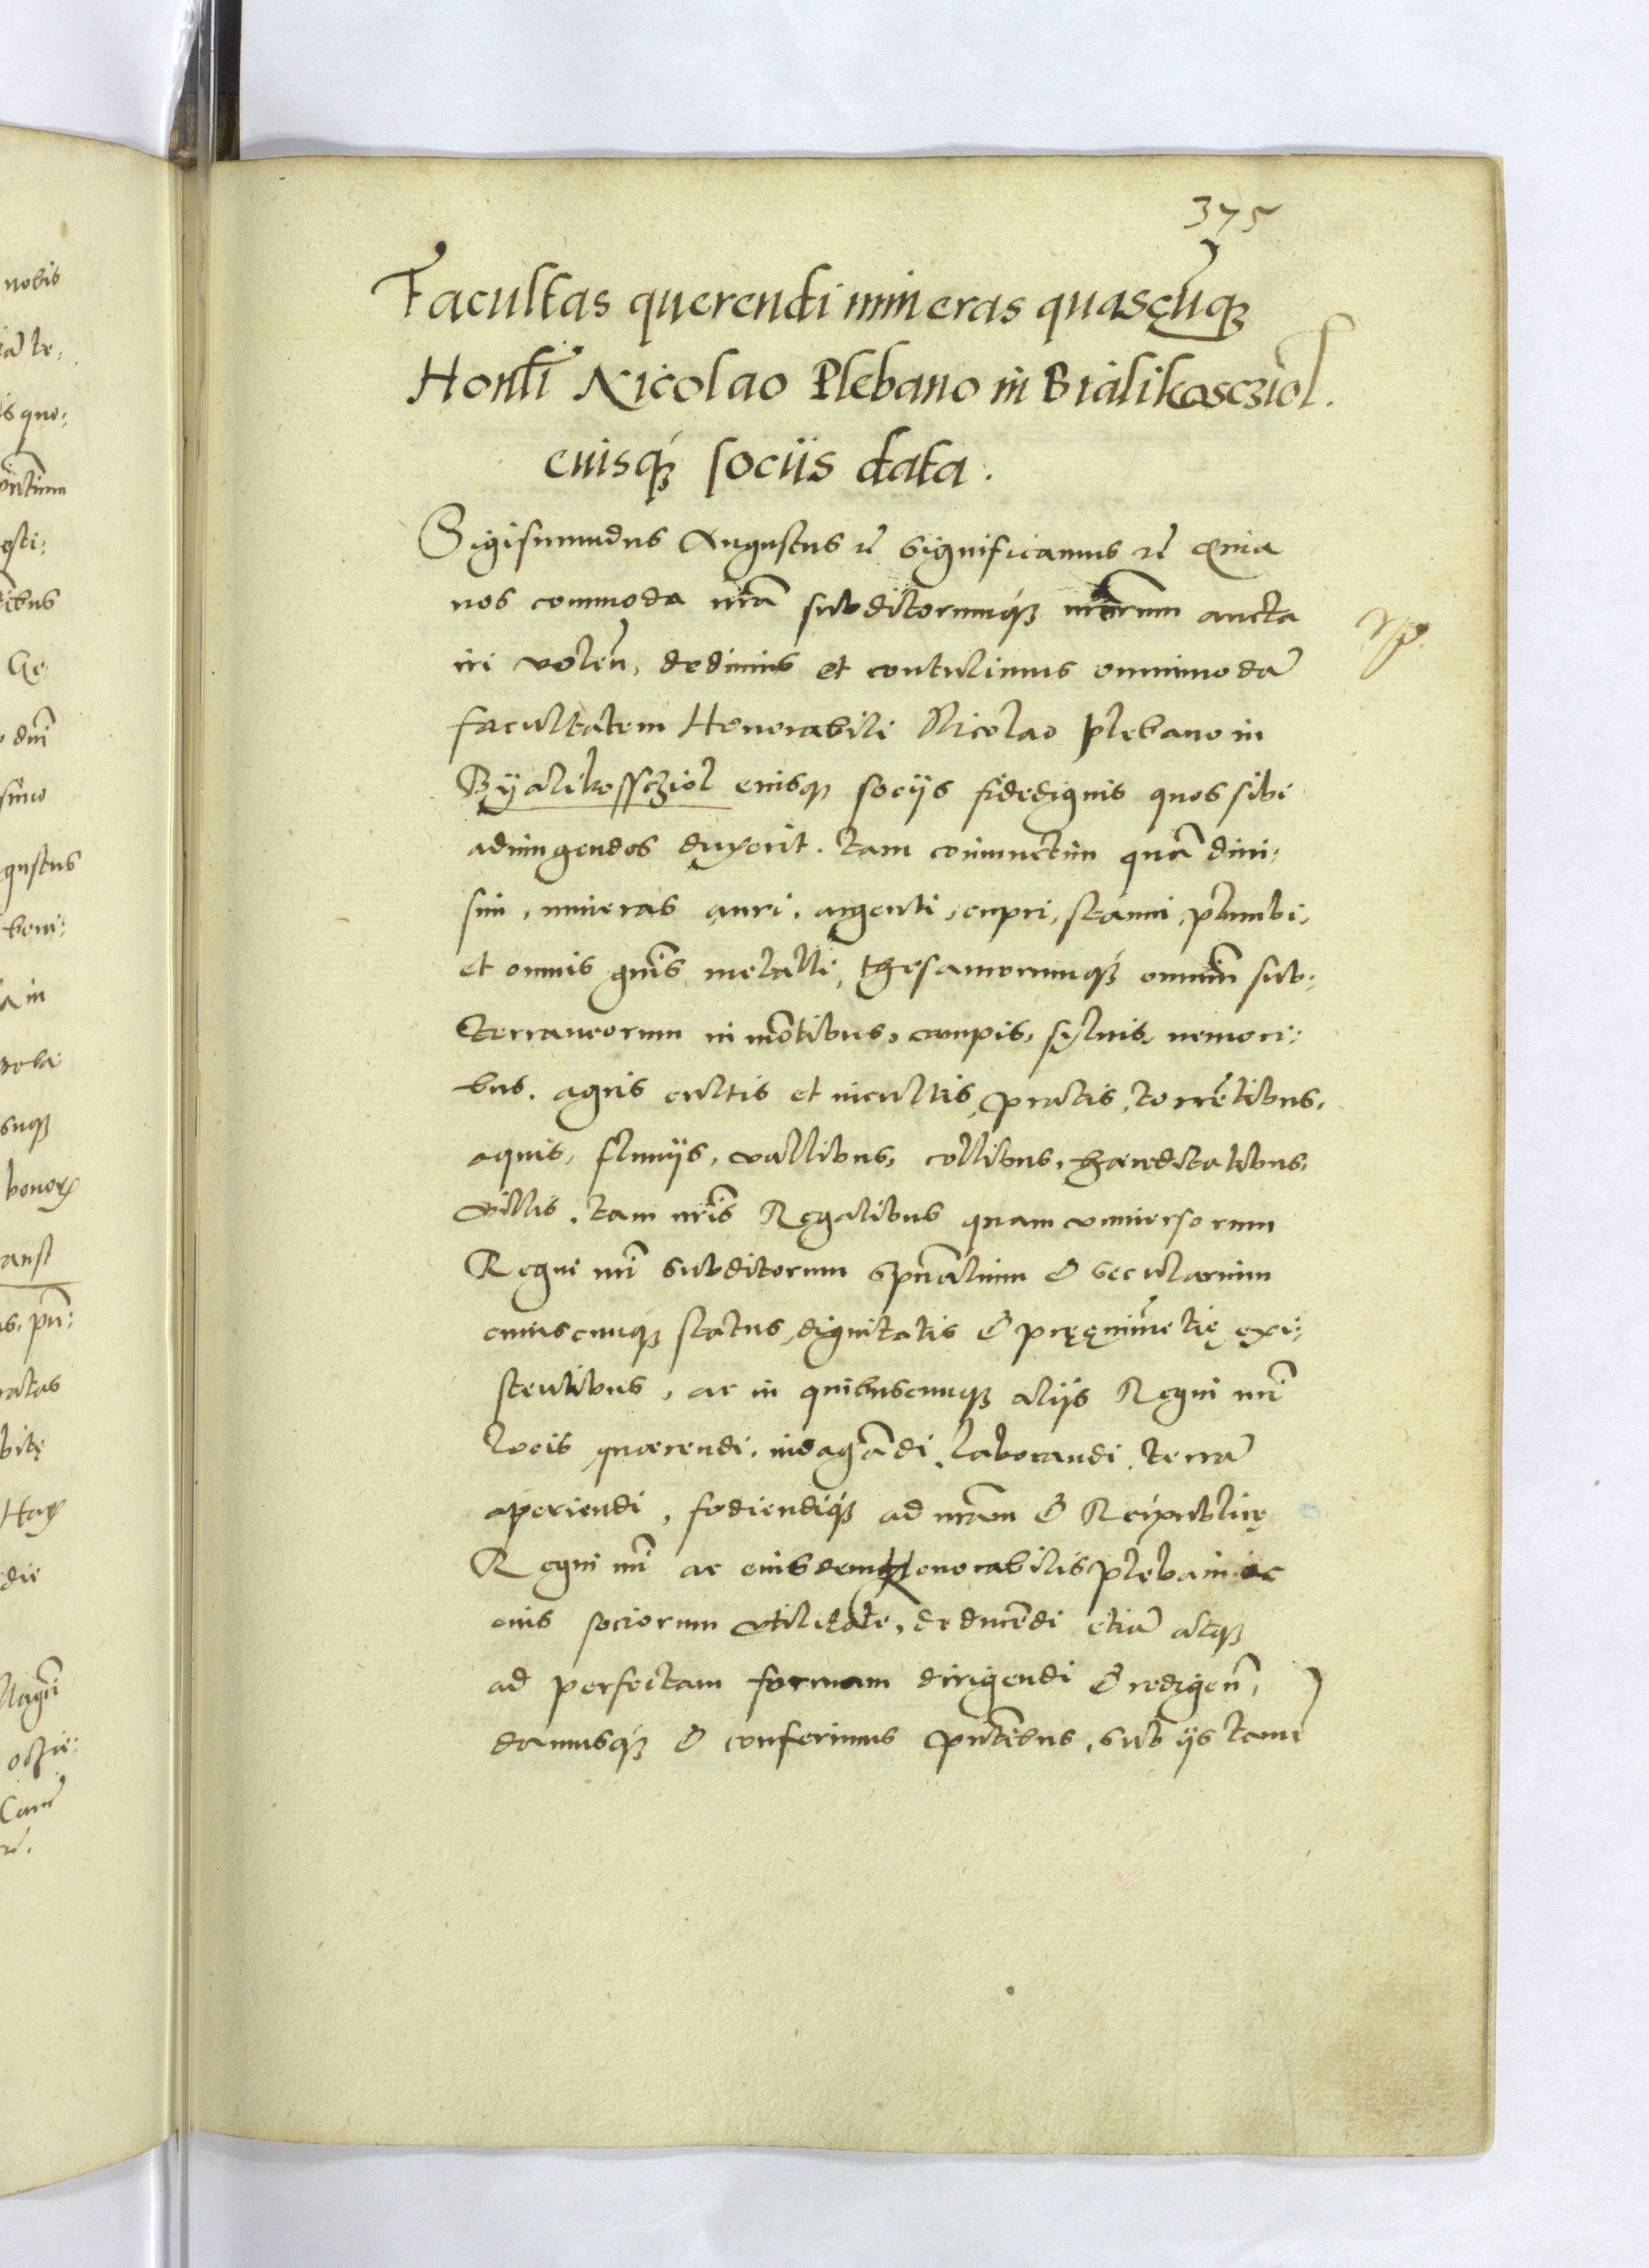 375
Facultas querendi mineras quascūq₃
Honli Nicolao Plebano in Bialikoscziol.
eiusq₃ sociis data.
Sigismundus Augustus rc̄ significamus rc̄ Quia
nos commoda nr̄a subditorumq₃ nr̄orum aucta
iri volen̄, dedimus et contulimus omnimodā
facultatem Honorabili Nicolao plebano in
Byalikosscziol eiusq₃ socijs fidedignis quos sibi
adiungendos duxerit. tam coniunctim quā diui:
sim, mineras auri, argenti, cupri, stanni, plumbi,
et omnis gn̄is metalli, thesaurorumq₃ omnium sub:
terraneorum in mōtibus, campis, syluis, nemori:
bus, agris cultis et incultis, pratis, torrētibus,
aquis, fluuijs, vallibus, collibus, haereditatibus,
villis, tam nr̄is Regalibus quam vniuersorum
Regni nr̄i subditorum spūalium & secularium
cuiuscunq₃ status, dignitatis & pręęminētię exi:
stentibus, ac in quibuscunq₃ alijs Regni nr̄i
locis quaerendi, indagādi, laborandi, terrā
aperiendi, fodiendiq₃ ad nr̄am & Reipublicę
Regni nr̄i ac eiusdem Honorabilis plebani ac
eius sociorum vtilitate, deducēdi etiā atq₃
ad perfectam formam dirigendi & redigen̄,
damusq₃ & conferimus pn̄tibus, sub ijs tamē
nobis
is quo:
esti:
tibus
Ge
dn̄i
simo
gustus
boni:
a in
suq₃
ratas
die